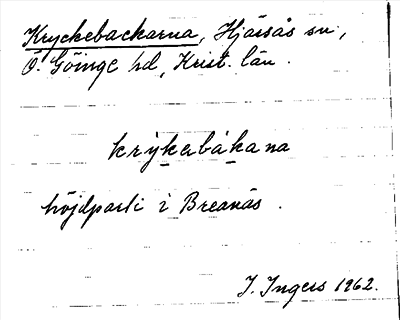 Kryckebackarna, Hjärsås sn,
Ö. Göinge hd, Krist. län.
krýkabákana
höjdparti i Breanäs.
I. Ingers 1962.